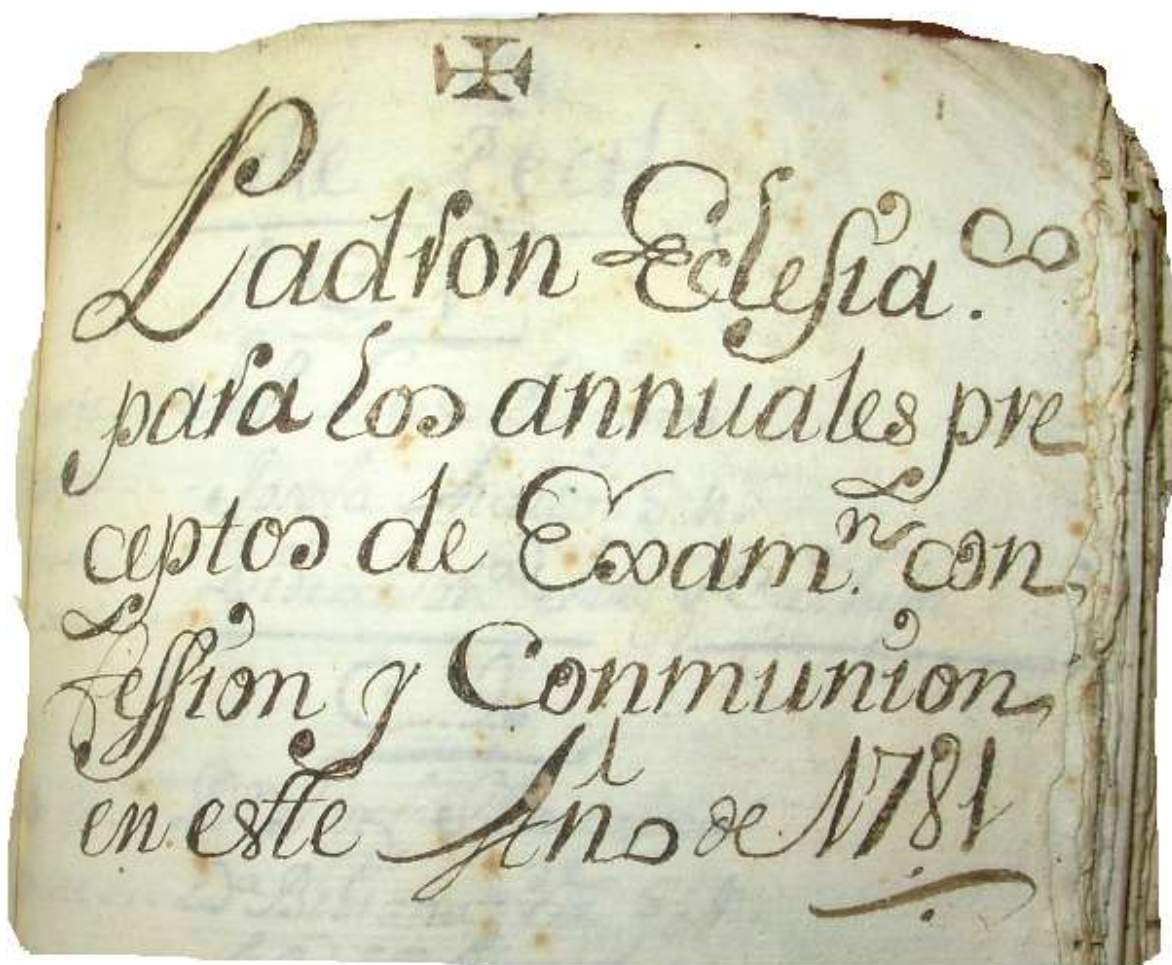 Padron Eclesia.co
para los annuales pre
ceptos de Exam.n con
fession y Conmunion
en estte Año de 1781